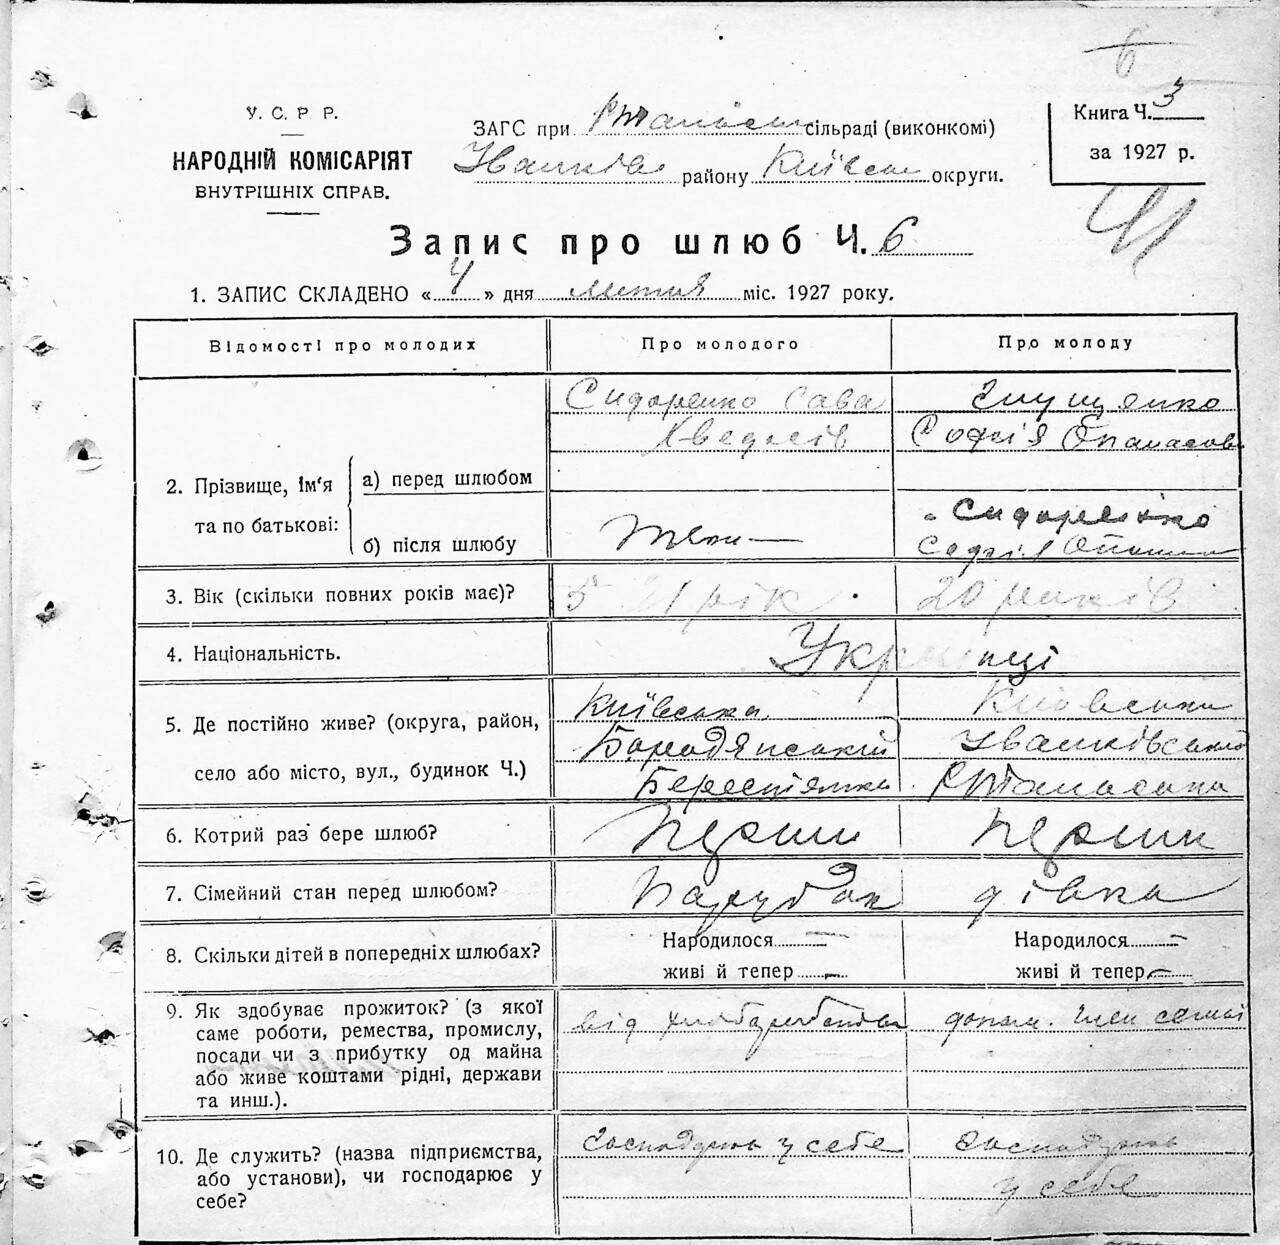 6
У. С. Р. Р.
НАРОДНІЙ КОМІСАРІЯТ
ВНУТРІШНІХ СПРАВ.
ЗАГС при сільраді (виконкомі)
Іванків району Київськ округи.
Книга Ч. 3
за 1927 р.
41
Запис про шлюб Ч. 6
1. ЗАПИС СКЛАДЕНО « 4 » дня лютня міс. 1927 року.
Відомості про молодих Про молодого Про молоду
2. Прізвище, ім'я та по батькові:
а) перед шлюбом
Сидоренко Сава
Хведосів
Глущенко
Софія Опанасова
б) після шлюбу
Сидоренко
Софія
3. Вік (скільки повних років має)? 21 рік 20 років
4. Національність. Українці
5. Де постійно живе? (округа, район,
село або місто, вул., будинок Ч.)
Київська
Бородянський
Берестянка
Київська
Іванківський
6. Котрий раз бере шлюб? Перший Перший
7. Сімейний стан перед шлюбом? Парубок дівка
8. Скільки дітей в попередніх шлюбах? Народилося — Народилося —
живі й тепер — живі й тепер —
9. Як здобуває прожиток? (з якої
саме роботи, ремества, промислу,
посади чи з прибутку од майна
або живе коштами рідні, держави
та инш.).
від хліборобства
допом. член семьї
10. Де служить? (назва підприємства,
або установи), чи господарює у
себе?
у себе
у себе